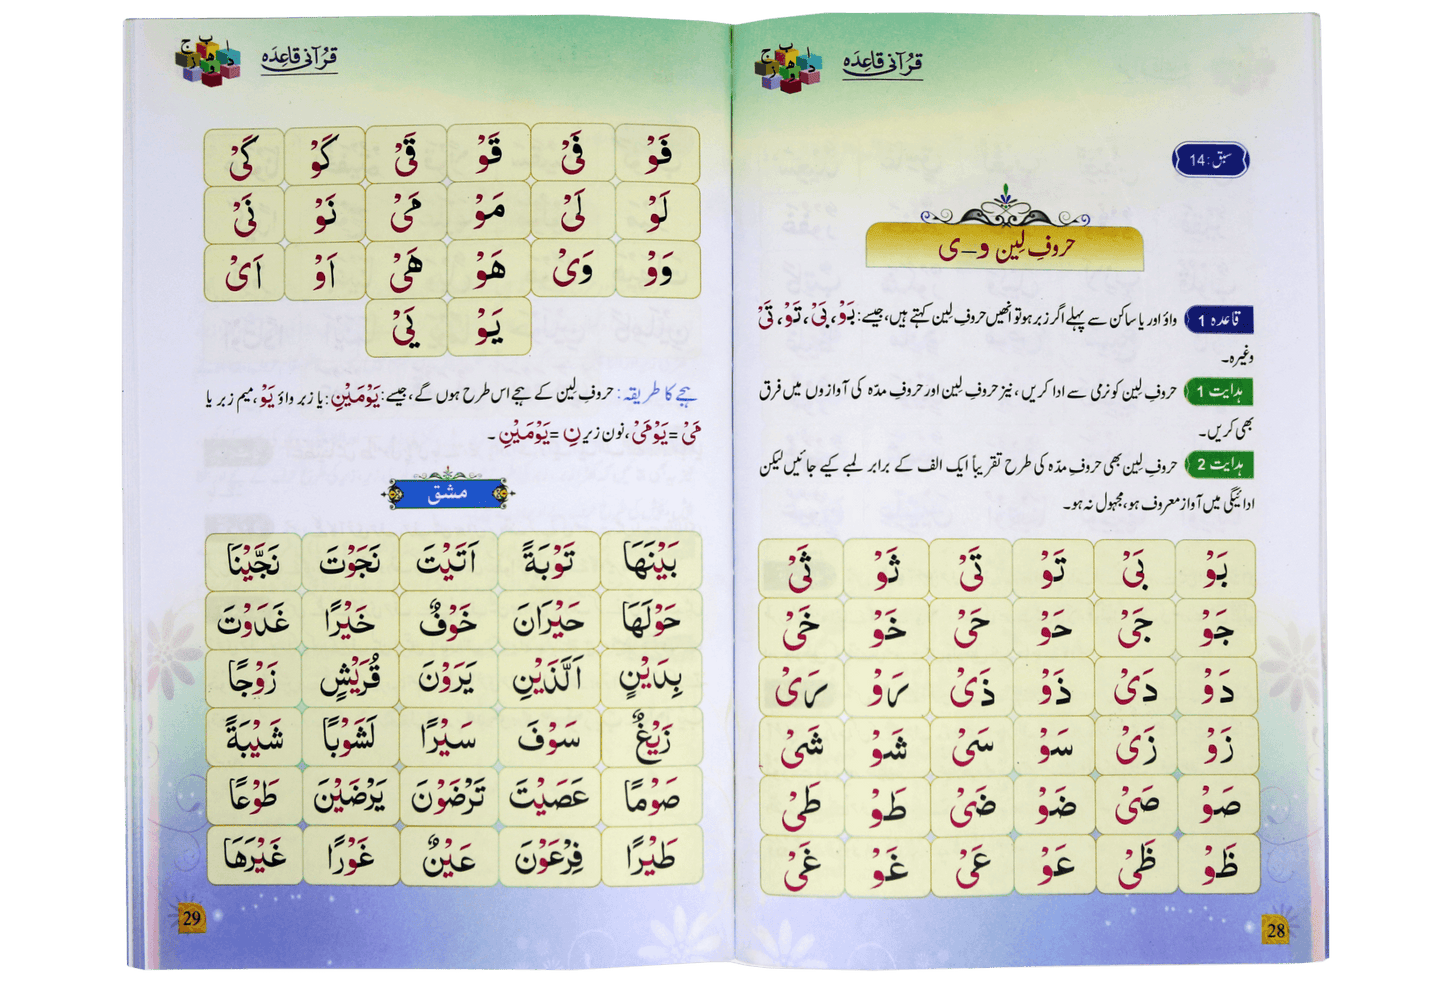 قرآنی قاعدہ
سبق: 14
حروفِ لِین و – ی
قاعدہ 1 واؤ اور یا ساکن سے پہلے اگر زبر ہو تو انھیں حروفِ لین کہتے ہیں، جیسے: بَوْ، بَیْ، تَوْ، تَیْ
وغیرہ۔
ہدایت 1 حروفِ لین کو نرمی سے ادا کریں، نیز حروفِ لین اور حروفِ مدّہ کی آوازوں میں فرق
بھی کریں۔
ہدایت 2 حروفِ لین بھی حروفِ مدّہ کی طرح تقریباً ایک الف کے برابر لمبے کیے جائیں لیکن
ادائیگی میں آواز معروف ہو، مجہول نہ ہو۔
بَوْ بَیْ تَوْ تَیْ ثَوْ ثَیْ
جَوْ جَیْ حَوْ حَیْ خَوْ خَیْ
دَوْ دَیْ ذَوْ ذَیْ رَوْ رَیْ
زَوْ زَیْ سَوْ سَیْ شَوْ شَیْ
صَوْ صَیْ ضَوْ ضَیْ طَوْ طَیْ
ظَوْ ظَیْ عَوْ عَیْ غَوْ غَیْ
28
قرآنی قاعدہ
فَوْ فَیْ قَوْ قَیْ كَوْ كَیْ
لَوْ لَیْ مَوْ مَیْ نَوْ نَیْ
وَوْ وَیْ هَوْ هَیْ اَوْ اَیْ
یَوْ یَیْ
ہجے کا طریقہ: حروفِ لین کے ہجے اس طرح ہوں گے، جیسے: یَوْمَیْنِ: یا زبر واؤ یَوْ، میم زبر یا
مَیْ = یَوْمَیْ، نون زیر نِ = یَوْمَیْنِ۔
مشق
بَیْنَهَا تَوْبَةً اَتَیْتَ نَجَوْتَ نَجَّیْنَا
حَوْلَهَا حَیْرَانَ خَوْفٌ خَیْرًا غَدَوْتَ
بِدَیْنٍ اَلَّذَیْنِ یَرَوْنَ قُرَیْشٍ زَوْجًا
زَیْغٌ سَوْفَ سَیْرًا لَشَوْبًا شَیْبَةً
صَوْمًا عَصَیْتَ تَرْضَوْنَ یَرْضَیْنَ طَوْعًا
طَیْرًا فِرْعَوْنَ عَیْنٌ غَوْرًا غَیْرَهَا
29